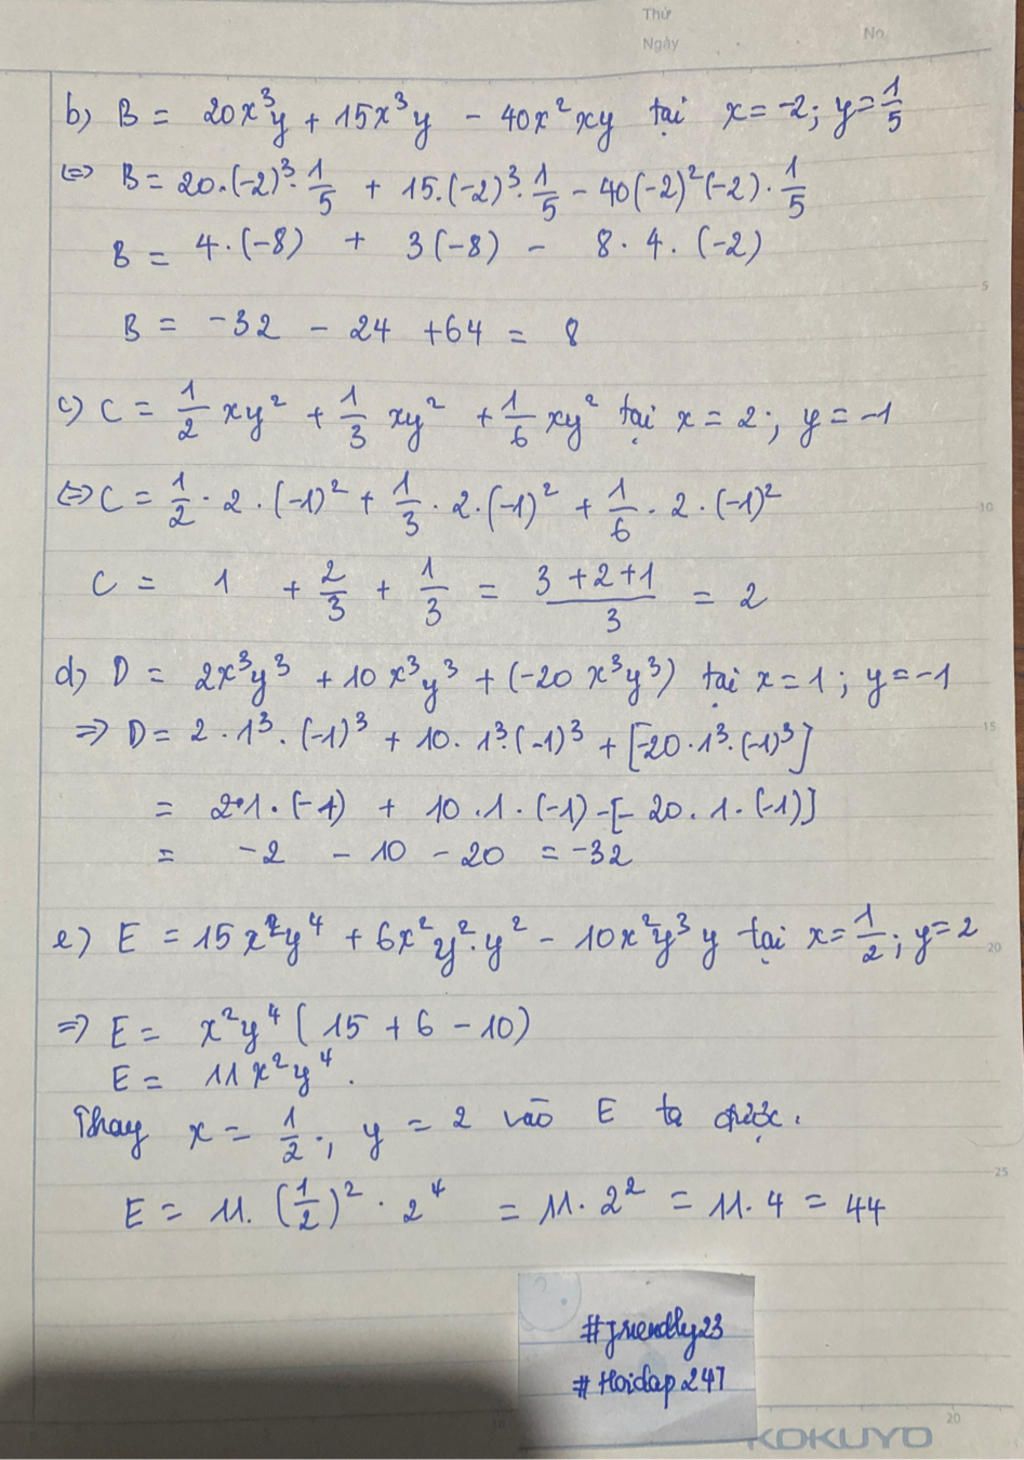 Thứ
Ngày
No
b) B = 20x³y + 15x³y - 40x²xy tại x = -2; y = 1/5
⇔ B = 20.(-2)³. 1/5 + 15.(-2)³. 1/5 - 40(-2)²(-2). 1/5
B = 4.(-8) + 3(-8) - 8.4.(-2)
5
B = -32 - 24 + 64 = 8
c) C = 1/2 xy² + 1/3 xy² + 1/6 xy² tại x = 2; y = -1
⇔ C = 1/2 . 2 . (-1)² + 1/3 . 2.(-1)² + 1/6 . 2 . (-1)²
10
C = 1 + 2/3 + 1/3 = (3 + 2 + 1)/3 = 2
d) D = 2x³y³ + 10x³y³ + (-20x³y³) tại x = 1; y = -1
⇒ D = 2 . 1³ . (-1)³ + 10 . 1³.(-1)³ + [-20.1³.(-1)³]
15
= 2.1.(-1) + 10.1.(-1) - [-20.1.(-1)]
= -2 - 10 - 20 = -32
e) E = 15x²y⁴ + 6x²y².y² - 10x²y³y tại x = 1/2; y = 2
20
⇒ E = x²y⁴(15 + 6 - 10)
E = 11x²y⁴.
Thay x = 1/2; y = 2 vào E ta được.
25
E = 11.(1/2)² . 2⁴ = 11.2² = 11.4 = 44
#friendly23
#Hoidap247
20
KOKUYO